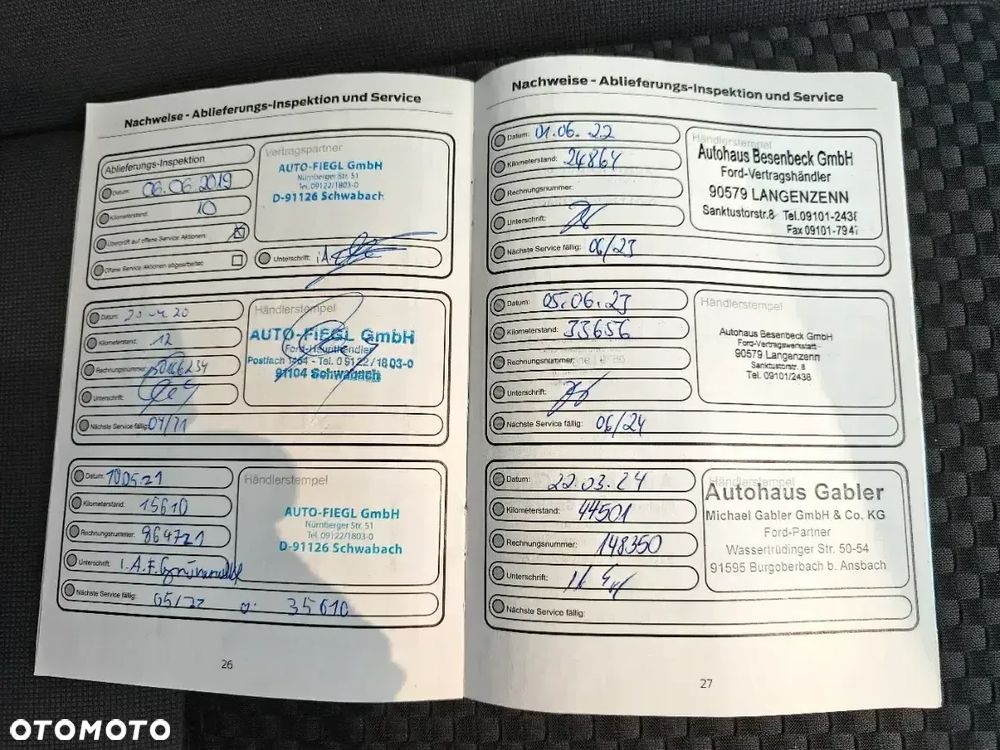 Nachweise - Ablieferungs-Inspektion und Service
Ablieferungs-Inspektion
Datum: 06.06.2019
Kilometerstand: 10
Überprüft auf offene Service Aktionen:
Offene Service Aktionen abgearbeitet:
Vertragspartner
AUTO-FIEGL GmbH
Nürnberger Str. 51
Tel. 09122/1803-0
D-91126 Schwabach
Unterschrift:
Datum:
Kilometerstand: 12
Rechnungsnummer:
Unterschrift:
Nächste Service fällig:
Händlerstempel
AUTO-FIEGL GmbH
Ford-Haupthändler
Postfach 1464 - Tel. 09122/1803-0
91104 Schwabach
Datum: 10.05.21
Kilometerstand: 15610
Rechnungsnummer: 864721
Unterschrift: i.A.
Nächste Service fällig: 05/22 o. 35610
Händlerstempel
AUTO-FIEGL GmbH
Nürnberger Str. 51
Tel. 09122/1803-0
D-91126 Schwabach
26
Nachweise - Ablieferungs-Inspektion und Service
Datum: 01.06.22
Kilometerstand: 24864
Rechnungsnummer:
Unterschrift:
Nächste Service fällig: 06/23
Händlerstempel
Autohaus Besenbeck GmbH
Ford-Vertragshändler
90579 LANGENZENN
Sanktustorstr.8 Tel.09101-2438
Fax 09101-7947
Datum: 05.06.23
Kilometerstand: 33656
Rechnungsnummer:
Unterschrift:
Nächste Service fällig: 06/24
Händlerstempel
Autohaus Besenbeck GmbH
Ford-Vertragswerkstatt
90579 Langenzenn
Sanktustorstr. 8
Tel. 09101/2438
Datum: 22.03.24
Kilometerstand: 44501
Rechnungsnummer: 148350
Unterschrift:
Nächste Service fällig:
Händlerstempel
Autohaus Gabler
Michael Gabler GmbH & Co. KG
Ford-Partner
Wassertrüdinger Str. 50-54
91595 Burgoberbach b. Ansbach
27
OTOMOTO